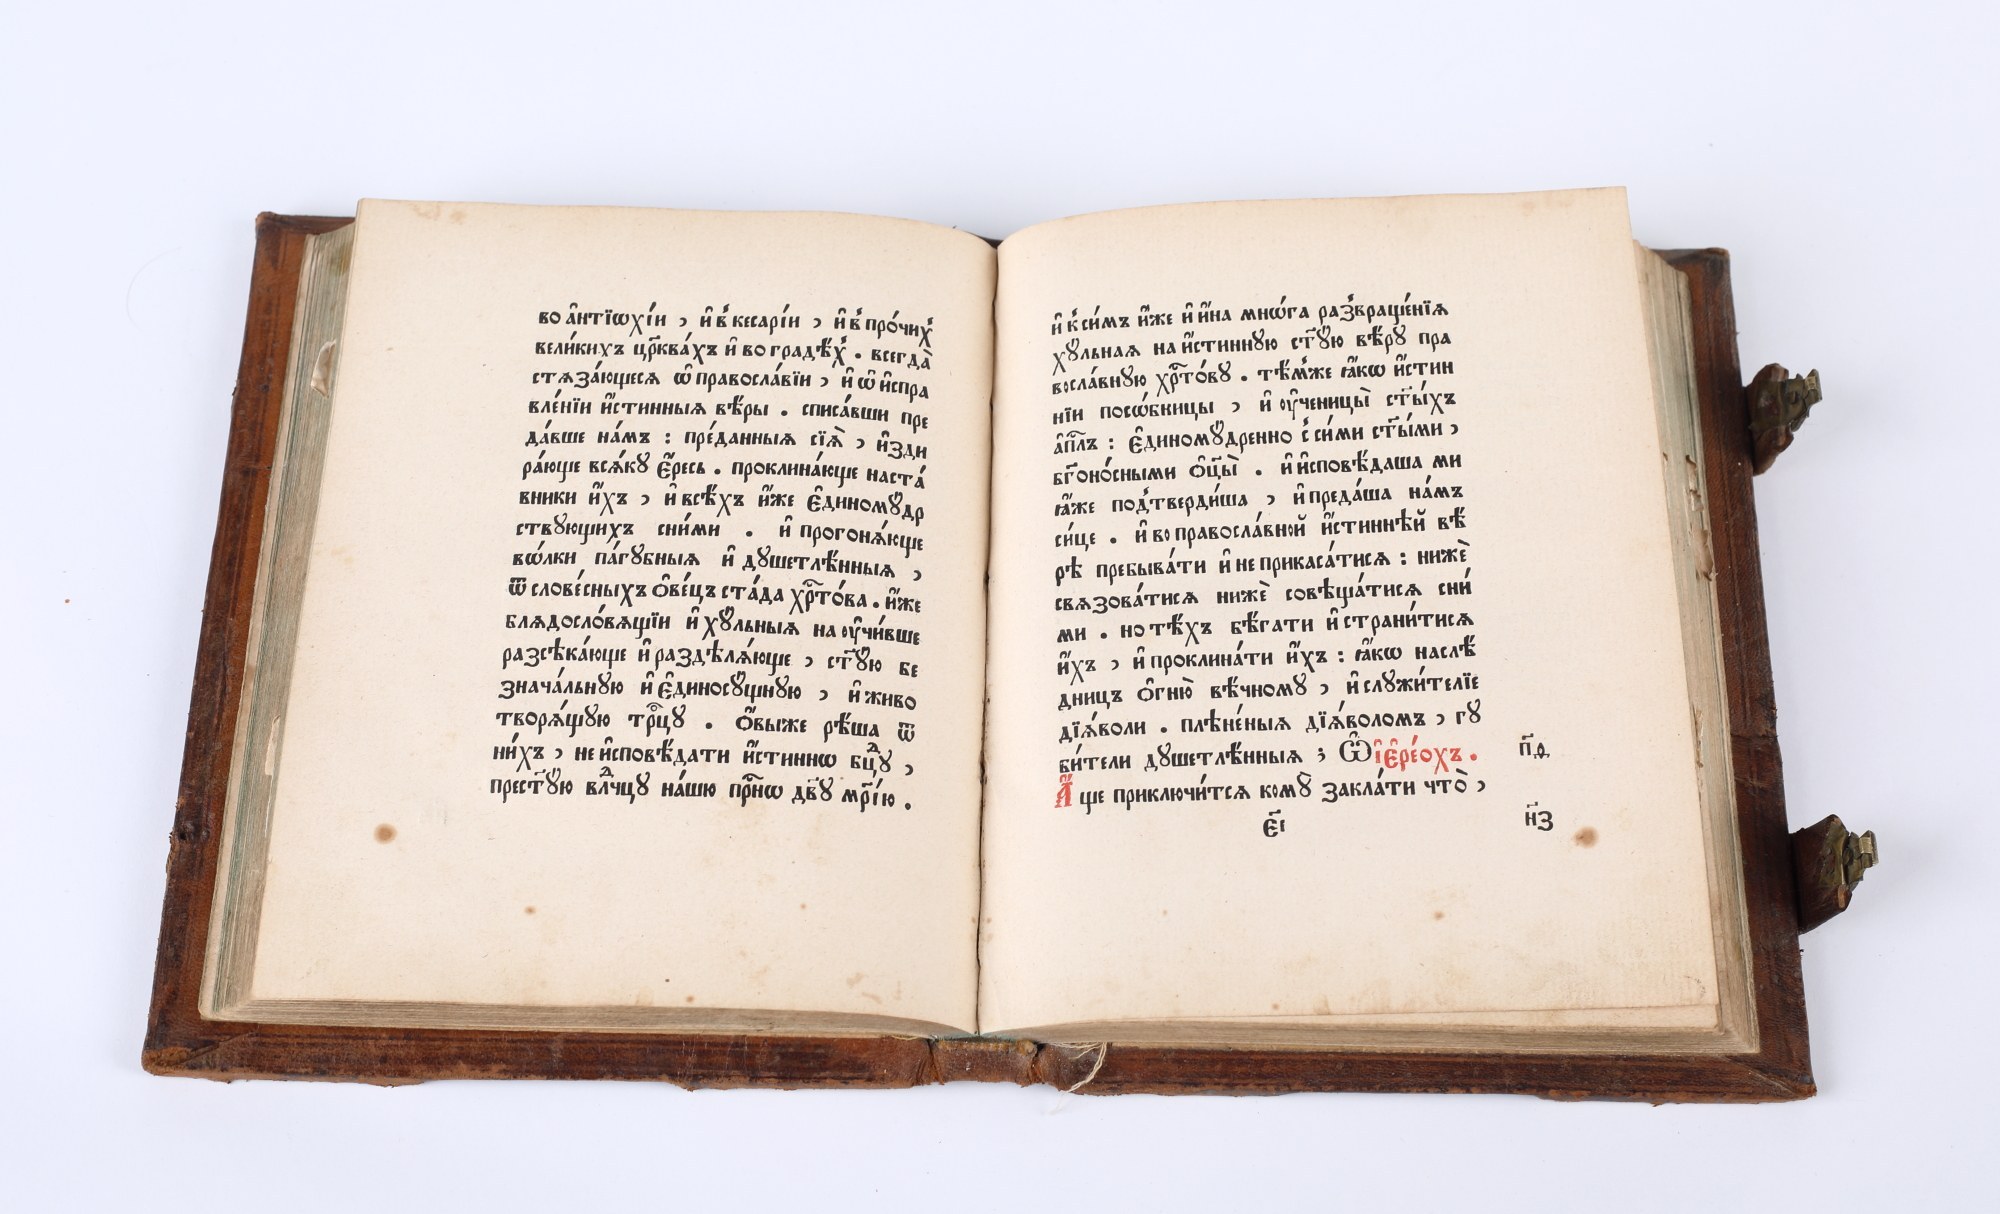 во а҆нтїѡхі́и , и҆ в̾ кесарі́и , и҆ в̾ про́чих̾
вели́кихъ цр҃ква́хъ и҆ во градѣ́х̾ . всегда̀
стѧза́ющесѧ ѡ҆ правосла́вїи , и҆ ѡ҆ и҆спра
вле́нїи и҆́стинныѧ вѣ́ры . списа́вши пре
да́вше на́мъ : пре́данныѧ сїѧ̀ , и҆зди
ра́юще всѧ́кꙋ є҆́ресь . проклина́юще наста́
вники и҆́хъ , и҆ всѣ́хъ и҆́же є҆диномꙋ́др
ствꙋющихъ сни́ми . и҆ прогонѧ́юще
вѡ́лки па́гꙋбныѧ и҆ дꙋшетлѣ́нныѧ ,
ѿ слове́сныхъ ѻ҆ве́цъ ста́да хрⷭ҇то́ва . и҆́же
блѧдосло́вѧщїи и҆ хꙋ́льныѧ на оу҆чи́вше
разсѣка́юще и҆ раздѣлѧ́юще , ст҃ꙋ́ю бе
знача́льнꙋю и҆ є҆диносꙋ́щнꙋю , и҆ живо
творѧ́щꙋю трⷪ҇цꙋ . ѻ҆́выже рѣ́ша ѿ
ни́хъ , не и҆сповѣ́дати и҆́стиннѡ бцⷣꙋ ,
прест҃ꙋ́ю влⷣчцꙋ на́шю прⷭ҇нѡ дв҃ꙋ мр҃і́ю .
и҆ к̾ си́мъ и҆́же и҆ и҆́на мнѡ́га раз̾враще́нїѧ
хꙋ́льнаѧ на и҆́стиннꙋю ст҃ꙋ́ю вѣ́рꙋ пра
восла́внꙋю хрⷭ҇то́вꙋ . тѣ́мже ꙗ҆́кѡ и҆́стин
нїи посѡ́бницы , и҆ оу҆ченицы̀ ст҃ы́хъ
а҆пⷭ҇лъ : є҆диномꙋ́дренно с̾ си́ми ст҃ы́ми ,
бг҃оно́сными ѻ҆ц҃ы̀ . и҆ и҆сповѣ́даша ми
ꙗ҆́же под̾тверди́ша , и҆ преда́ша на́мъ
си́це . и҆ во правосла́вной и҆́стиннѣй вѣ́
рѣ пребыва́ти и҆ не прикаса́тисѧ : нижѐ
свѧзова́тисѧ нижѐ совѣща́тисѧ сни́
ми . но тѣ́хъ бѣ́гати и҆ страни́тисѧ
и҆́хъ , и҆ проклина́ти и҆́хъ : ꙗ҆́кѡ наслѣ́
дницъ ѻ҆гню̀ вѣ́чномꙋ , и҆ слꙋжи́телїе
дїѧ́воли . плѣне́ныѧ дїѧ́воломъ , гꙋ
би́тели дꙋшетлѣ́нныѧ ; Ѡ҆ і҆є҆ре́охъ . п҃д
А҆́ще приключи́тсѧ комꙋ̀ закла́ти что̀ ,
є҃і н҃з